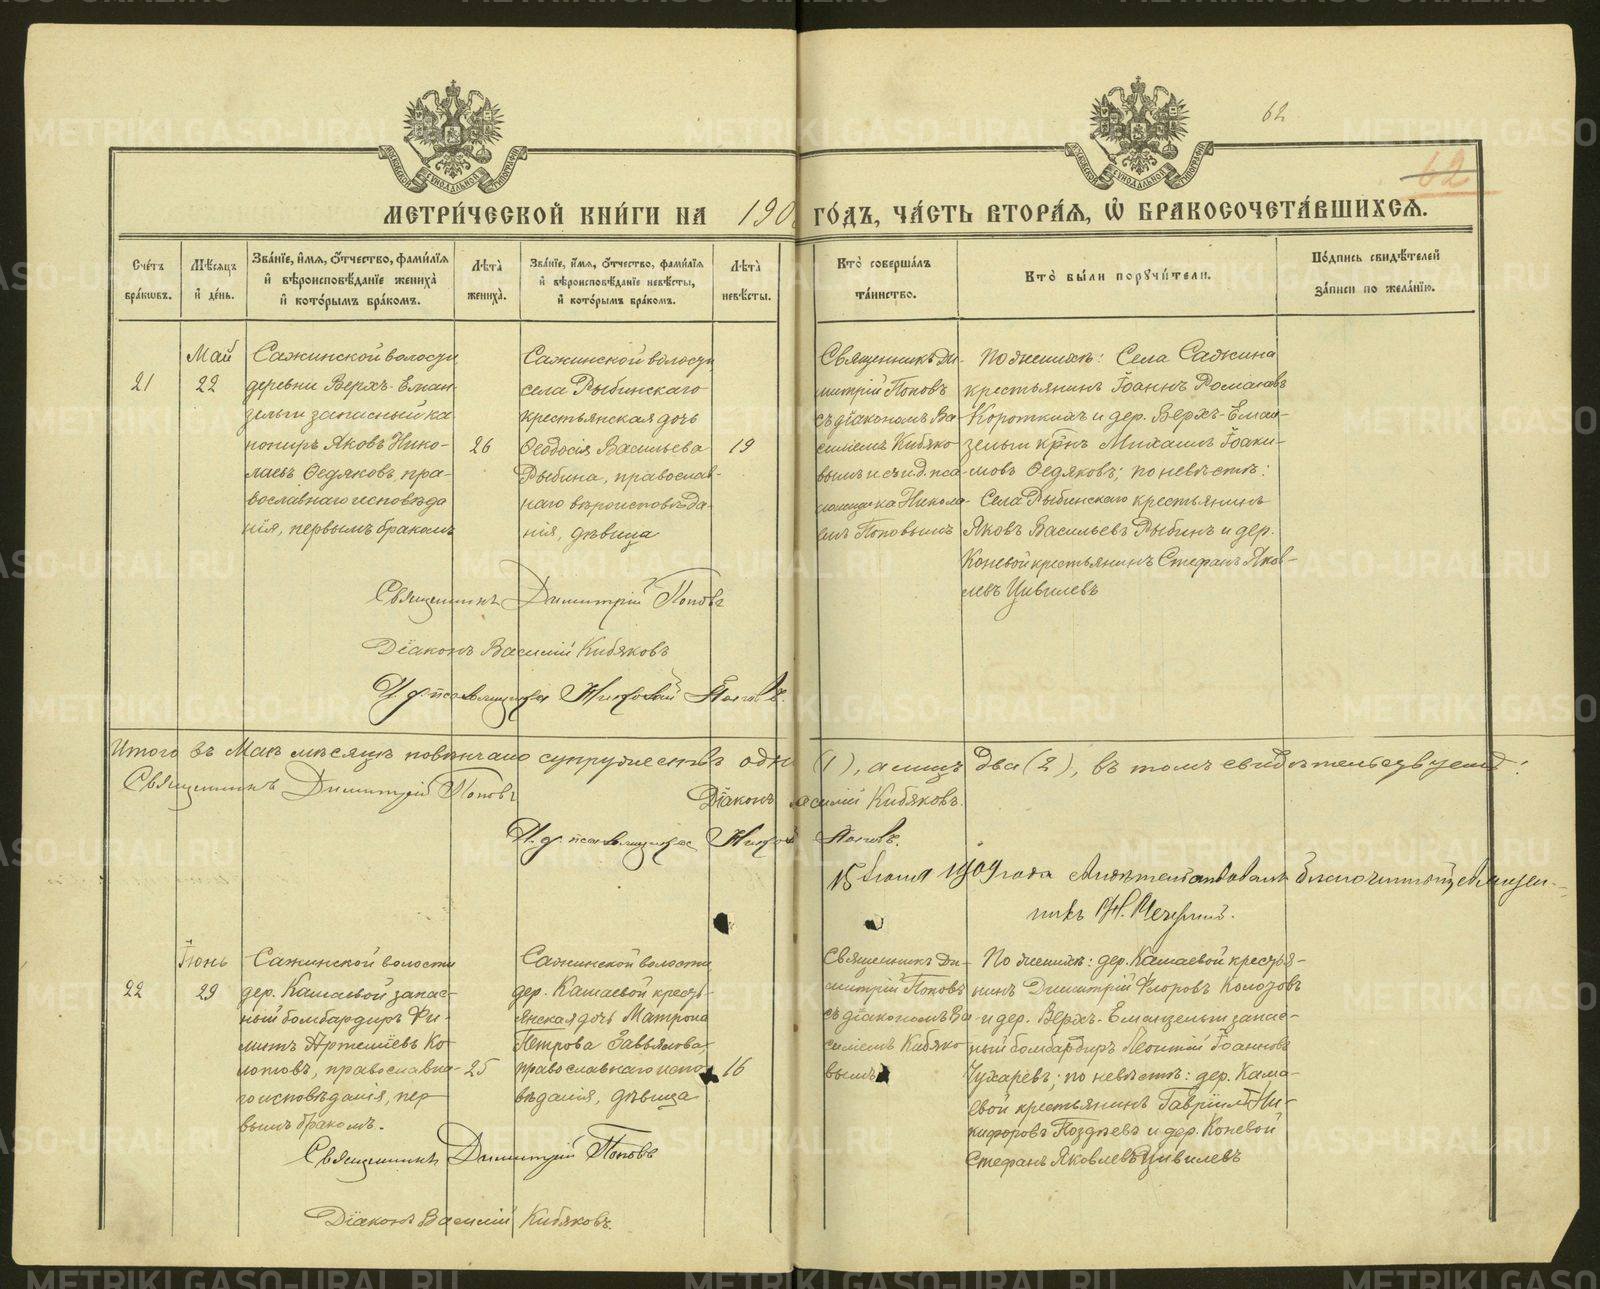 62
62
МЕТРИ́ЧЕСКОЙ КНИ́ГИ НА 190 ГО́ДЪ, ЧА́СТЬ ВТОРА́Я, Ѡ БРАКОСОЧЕТА́ВШИХСЯ.
Сче́тъ бра́кѡвъ.
Мѣ́сяцъ и҆ де́нь.
Зва́нїе, и҆́мя, ѻ҆́тчество, фами́лїя и҆ вѣроисповѣ́данїе жениха̀ и҆ кото́рымъ бра́комъ.
Лѣ́та жениха̀.
Зва́нїе, и҆́мя, ѻ҆́тчество, фами́лїя и҆ вѣроисповѣ́данїе невѣ́сты, и҆ кото́рымъ бра́комъ.
Лѣ́та невѣ́сты.
Кто̀ соверша́лъ та́инство.
Кто̀ бы́ли порꙋчи́тели.
По́дпись свидѣ́телей за́писи по жела́нїю.
21
Май
22
Сажинской волости
деревни Верхъ-Еман-
зельги запасный ка
нониръ Яковъ Нико-
лаевъ Ѳедяковъ, пра-
вославнаго исповѣда
нія, первымъ бракомъ
26
Сажинской волости
села Рыбинскаго
крестьянская дочь
Ѳеодосія Васильева
Рыбина, православ-
наго вѣроисповѣда-
нія, дѣвица
19
Священникъ Ди-
митрій Поповъ
съ діакономъ Ва-
силіемъ Кибяко
вымъ и и. д. пса
ломщика Никола-
емъ Поповымъ
По женихѣ: Села Сажина
крестьянинъ Іоаннъ Романовъ
Короткихъ и дер. Верхъ-Еман-
зельги крнъ Михаилъ Іоаки-
мовъ Ѳедяковъ; по невѣстѣ:
Села Рыбинскаго крестьянинъ
Яковъ Васильевъ Рыбинъ и дер.
Коневой крестьянинъ Стефанъ Яков-
левъ Цивилевъ
Священникъ Димитрій Поповъ
Діаконъ Василій Кибяковъ
И. д. псаломщика Николай Поповъ.
Итого въ Маѣ мѣсяцѣ повѣнчано супружествъ одн (1), а лицъ два (2), въ томъ свидѣтельствуемъ:
Священникъ Димитрій Поповъ
Діаконъ асилій Кибяковъ.
И. д. псаломщика Никол Поповъ.
15 1909 года благочинный Священ-
никъ
22
Іюнь
29
Сажинской волости
дер. Камаевой запас-
ный бомбардиръ Фи-
липъ Артеміевъ Ко
лотовъ, православна-
го исповѣданія, пер
вымъ бракомъ.
25
Сажинской волости
дер. Камаевой кресть-
янская дочь Матрона
Петрова Завьялова,
православнаго испо
вѣданія, дѣвица
16
Священникъ Ди-
митрій Поповъ
съ діакономъ Ва
силіемъ Кибяко
вымъ
По женихѣ: дер. Камаевой крестья-
нинъ Димитрій Флоровъ Колозовъ
и дер. Верхъ-Еманзельги запас-
ный бомбардиръ Леонтій Іоанновъ
Чухаревъ; по невѣстѣ: дер. Кама-
евой крестьянинъ Гавріилъ Ни-
кифоровъ Поздѣевъ и дер. Коневой
Стефанъ Яковлевъ Цивилевъ
Священникъ Димитрій Поповъ
Діаконъ Василій Кибяковъ.
METRIKI.GASO-URAL.RU